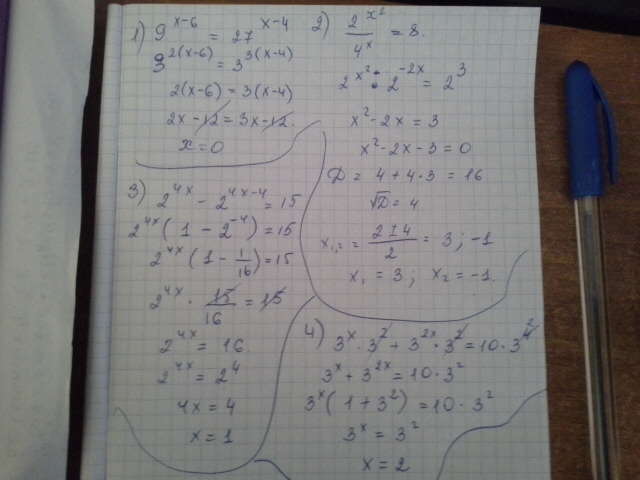 1) 9^{x-6} = 27^{x-4}
3^{2(x-6)} = 3^{3(x-4)}
2(x-6) = 3(x-4)
2x-12 = 3x-12.
x = 0
2) \frac{2^{x^2}}{4^x} = 8.
2^{x^2} · 2^{-2x} = 2^3
x^2 - 2x = 3
x^2 - 2x - 3 = 0
D = 4 + 4·3 = 16
√D = 4
x_{1,2} = \frac{2±4}{2} = 3; -1
x_1 = 3; x_2 = -1.
3) 2^{4x} - 2^{4x-4} = 15
2^{4x}(1 - 2^{-4}) = 15
2^{4x}(1 - \frac{1}{16}) = 15
2^{4x} · \frac{15}{16} = 15
2^{4x} = 16.
2^{4x} = 2^4
4x = 4
x = 1
3^x + 3^{2x} = 10·3^2
3^x(1 + 3^2) = 10·3^2
3^x = 3^2
x = 2